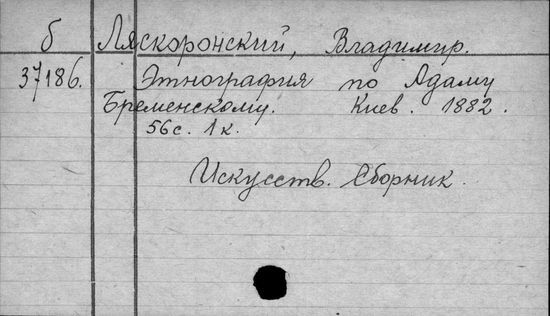 б Ляскоронский, Владимир.
37186. Этнография по Адаму
Бременскому. Киев. 1882.
56 с. 1 к.
Искусств. Сборник.